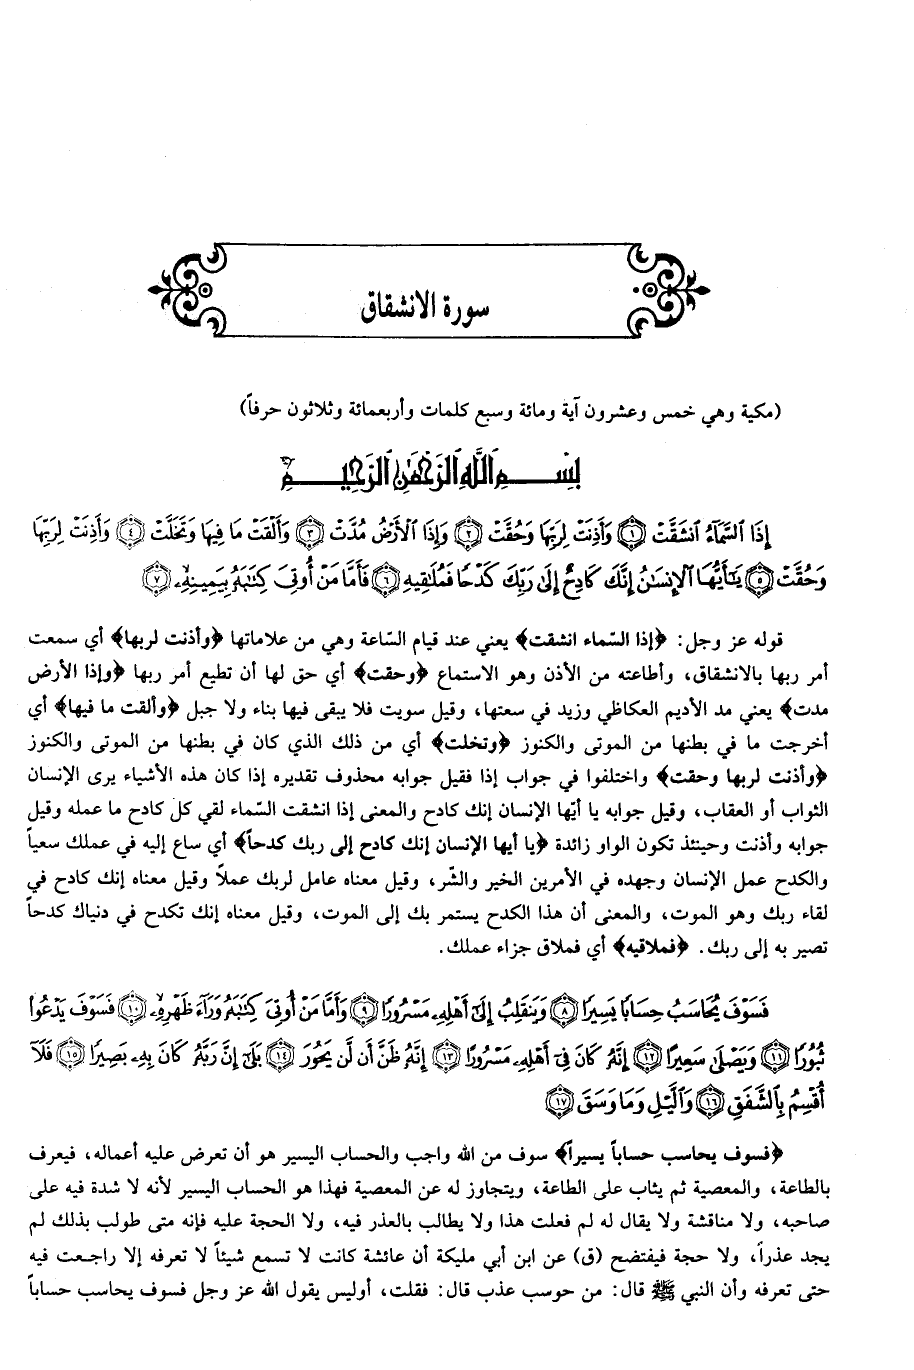 سورة الانشقاق
(مكية وهي خمس وعشرون آية ومائة وسبع كلمات وأربعمائة وثلاثون حرفاً)
بِسْمِ اللَّهِ الرَّحْمَٰنِ الرَّحِيمِ
إِذَا ٱلسَّمَآءُ ٱنشَقَّتْ ١ وَأَذِنَتْ لِرَبِّهَا وَحُقَّتْ ٢ وَإِذَا ٱلْأَرْضُ مُدَّتْ ٣ وَأَلْقَتْ مَا فِيهَا وَتَخَلَّتْ ٤ وَأَذِنَتْ لِرَبِّهَا
وَحُقَّتْ ٥ يَٰٓأَيُّهَا ٱلْإِنسَٰنُ إِنَّكَ كَادِحٌ إِلَىٰ رَبِّكَ كَدْحًا فَمُلَٰقِيهِ ٦ فَأَمَّا مَنْ أُوتِىَ كِتَٰبَهُۥ بِيَمِينِهِۦ ٧
قوله عز وجل: ﴿إذا السّماء انشقت﴾ يعني عند قيام السّاعة وهي من علاماتها ﴿وأذنت لربها﴾ أي سمعت
أمر ربها بالانشقاق، وأطاعته من الأذن وهو الاستماع ﴿وحقت﴾ أي حق لها أن تطيع أمر ربها ﴿وإذا الأرض
مدت﴾ يعني مد الأديم العكاظي وزيد في سعتها، وقيل سويت فلا يبقى فيها بناء ولا جبل ﴿وألقت ما فيها﴾ أي
أخرجت ما في بطنها من الموتى والكنوز ﴿وتخلت﴾ أي من ذلك الذي كان في بطنها من الموتى والكنوز
﴿وأذنت لربها وحقت﴾ واختلفوا في جواب إذا فقيل جوابه محذوف تقديره إذا كان هذه الأشياء يرى الإنسان
الثواب أو العقاب، وقيل جوابه يا أيّها الإنسان إنك كادح والمعنى إذا انشقت السّماء لقي كل كادح ما عمله وقيل
جوابه وأذنت وحينئذ تكون الواو زائدة ﴿يا أيها الإنسان إنك كادح إلى ربك كدحاً﴾ أي ساع إليه في عملك سعياً
والكدح عمل الإنسان وجهده في الأمرين الخير والشّر، وقيل معناه عامل لربك عملاً وقيل معناه إنك كادح في
لقاء ربك وهو الموت، والمعنى أن هذا الكدح يستمر بك إلى الموت، وقيل معناه إنك تكدح في دنياك كدحاً
تصير به إلى ربك. ﴿فملاقيه﴾ أي فملاق جزاء عملك.
فَسَوْفَ يُحَاسَبُ حِسَابًا يَسِيرًا ٨ وَيَنقَلِبُ إِلَىٰٓ أَهْلِهِۦ مَسْرُورًا ٩ وَأَمَّا مَنْ أُوتِىَ كِتَٰبَهُۥ وَرَآءَ ظَهْرِهِۦ ١٠ فَسَوْفَ يَدْعُوا۟
ثُبُورًا ١١ وَيَصْلَىٰ سَعِيرًا ١٢ إِنَّهُۥ كَانَ فِىٓ أَهْلِهِۦ مَسْرُورًا ١٣ إِنَّهُۥ ظَنَّ أَن لَّن يَحُورَ ١٤ بَلَىٰٓ إِنَّ رَبَّهُۥ كَانَ بِهِۦ بَصِيرًا ١٥ فَلَآ
أُقْسِمُ بِٱلشَّفَقِ ١٦ وَٱلَّيْلِ وَمَا وَسَقَ ١٧
﴿فسوف يحاسب حساباً يسيراً﴾ سوف من الله واجب والحساب اليسير هو أن تعرض عليه أعماله، فيعرف
بالطاعة، والمعصية ثم يثاب على الطاعة، ويتجاوز له عن المعصية فهذا هو الحساب اليسير لأنه لا شدة فيه على
صاحبه، ولا مناقشة ولا يقال له لم فعلت هذا ولا يطالب بالعذر فيه، ولا الحجة عليه فإنه متى طولب بذلك لم
يجد عذراً، ولا حجة فيفتضح (ق) عن ابن أبي مليكة أن عائشة كانت لا تسمع شيئاً لا تعرفه إلا راجعت فيه
حتى تعرفه وأن النبي ﷺ قال: من حوسب عذب قال: فقلت، أوليس يقول الله عز وجل فسوف يحاسب حساباً